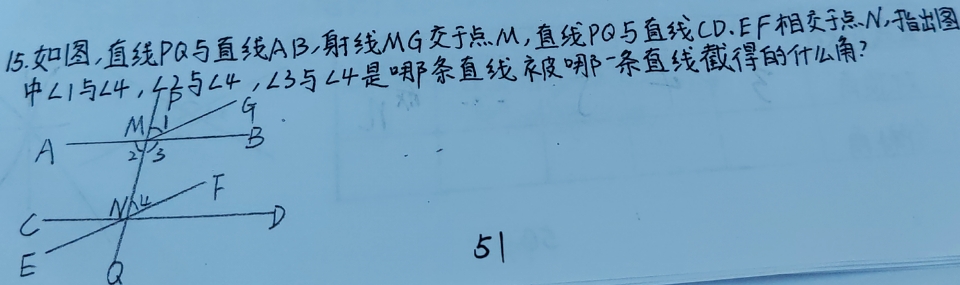 15.如图,直线PQ与直线AB,射线MG交于点M,直线PQ与直线CD.EF相交于点N,指出图
中∠1与∠4,∠2与∠4,∠3与∠4是哪条直线被哪一条直线截得的什么角?
P
G
M 1
A B
2 3
F
N 4
C D
E
Q
51